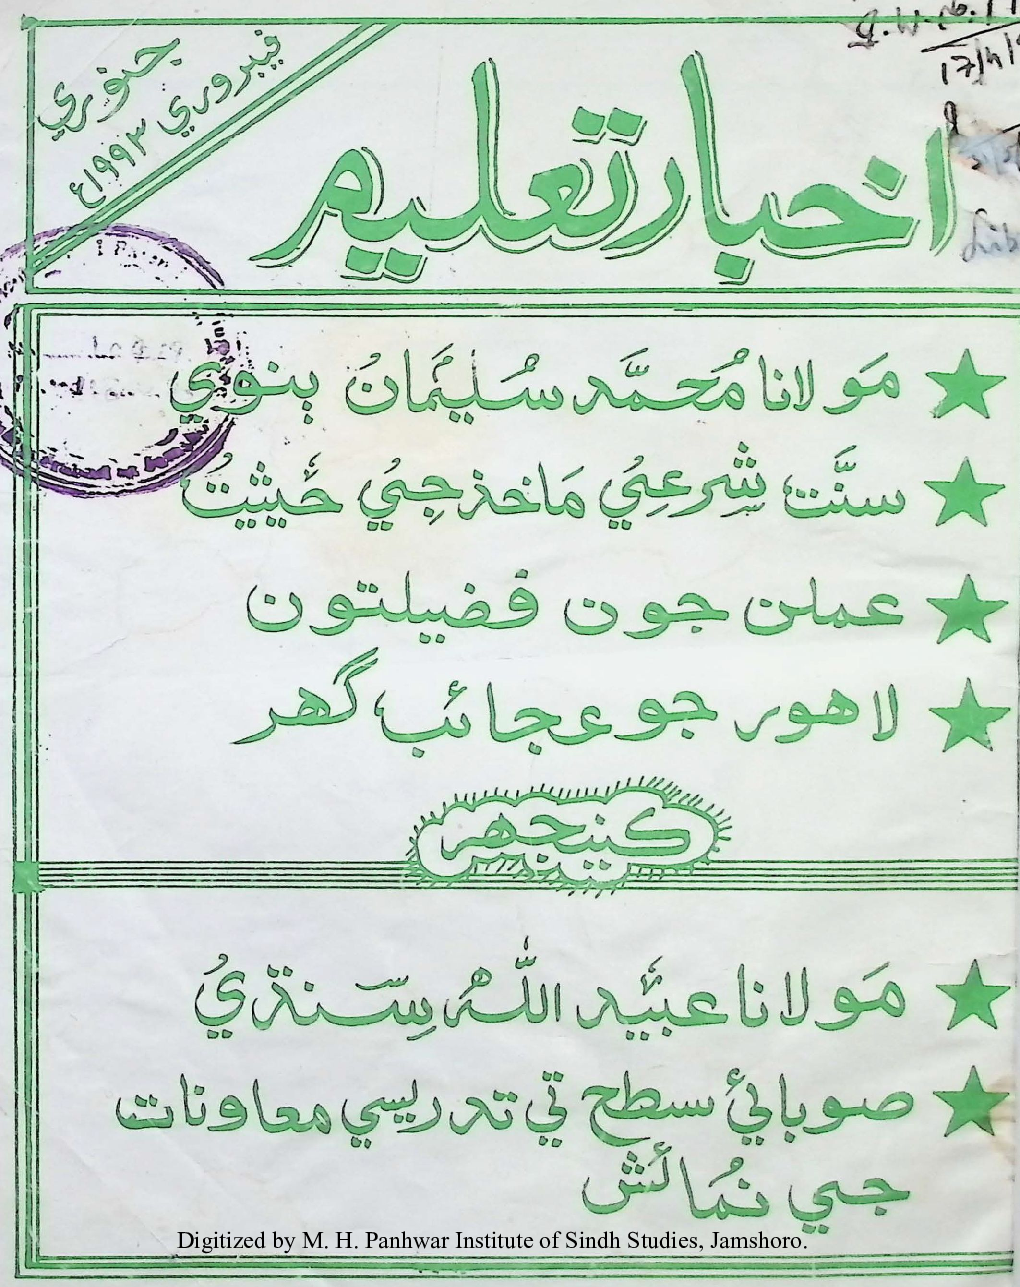 جنوري
فيبروري ١٩٩٣ع
اخبار تعليم
مَولانا مُحمَّد سُليمانَ بنوي
سنَّت شرعِي مَاخذ جِي حَيثيتُ
عملن جون فضيلتون
لاهور جو عجائب گهر
ڪينجهر
مَولانا عبَيد اللّٰهُ سِنڌيُ
صوبائي سطح تي تدريسي معاونات
جي نمُائش
Digitized by M. H. Panhwar Institute of Sindh Studies, Jamshoro.